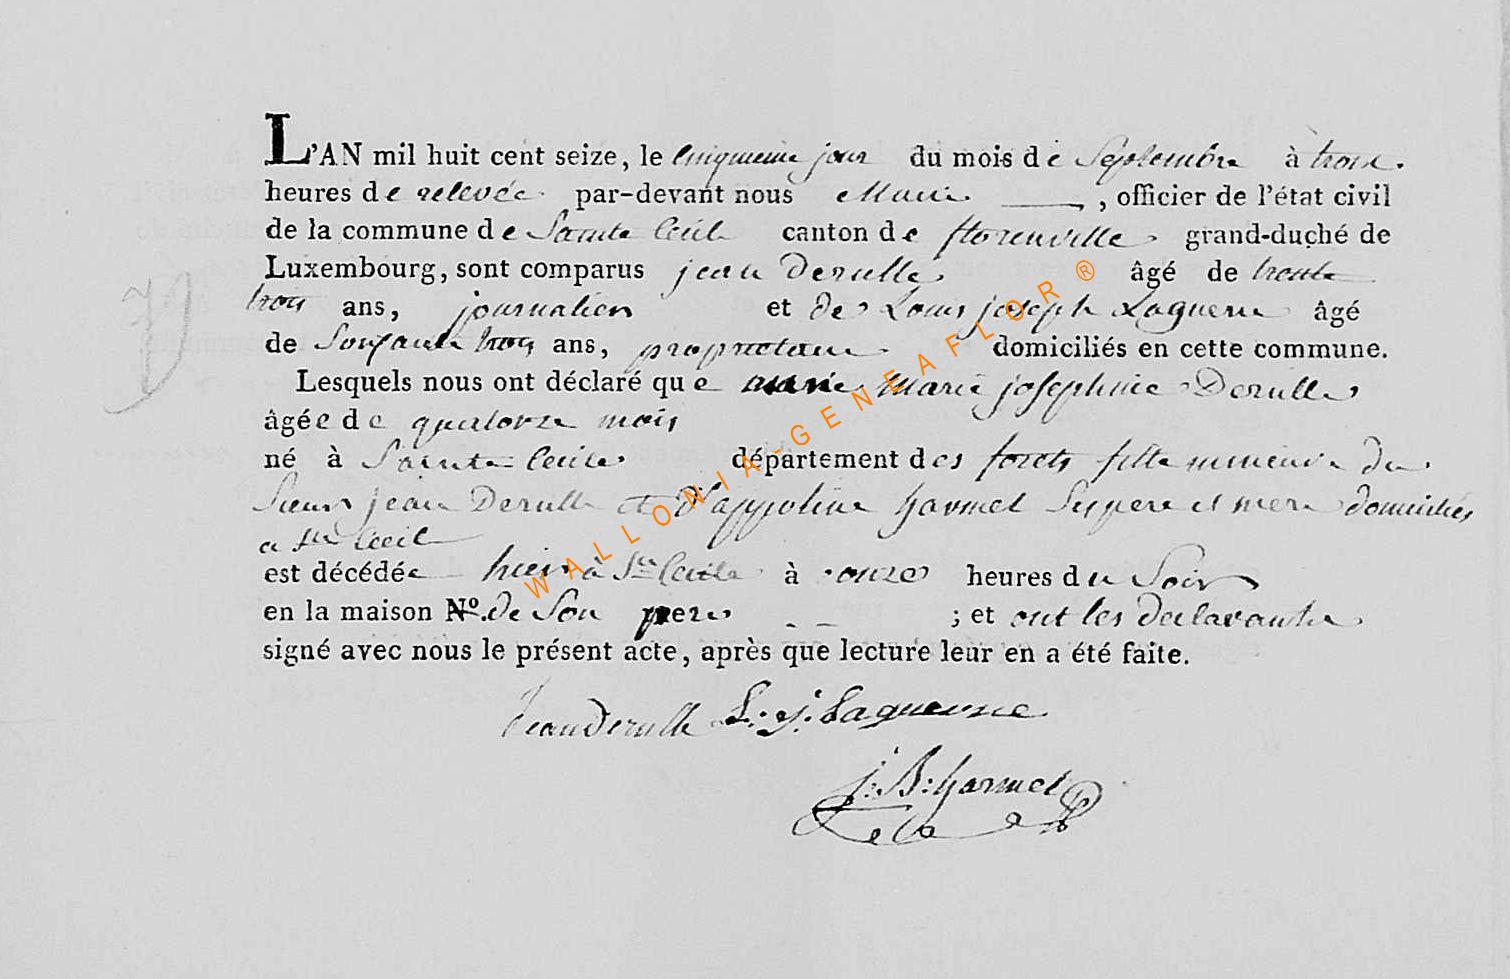 L'AN mil huit cent seize, le cinquieme jour du mois de Septembre à trois
heures de relevée par-devant nous Maire , officier de l'état civil
de la commune de Sainte Cécile canton de florenville grand-duché de
Luxembourg, sont comparus jean Derulle âgé de trente
trois ans, journalier et de Louis joseph Laguerre âgé
de Soixante trois ans, proprietaire domiciliés en cette commune.
Lesquels nous ont déclaré que marie Marie josephine Derulle
âgée de quatorze mois
né à Sainte Cecile département des forets fille mineure du
Sieur jean Derulle et d'appoline harmel Ses pere et mere domiciliés
a Ste Cecile
est décédée hier à Ste Cecile à onze heures du Soir
en la maison N.º de Son pere ; et ont les declarants
signé avec nous le présent acte, après que lecture leur en a été faite.
Jean Derulle L: j: Laguerre
j: B: harmel
WALLONIA-GENEAFLOR®